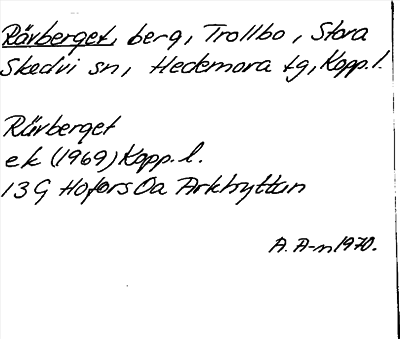 Rävberget, berg, Trollbo, Stora
Skedvi sn, Hedemora tg, Kopp.l.
Rävberget
ek (1969) Kopp.l.
13 G Hofors 0a Arkhyttan
A. A-n 1970.